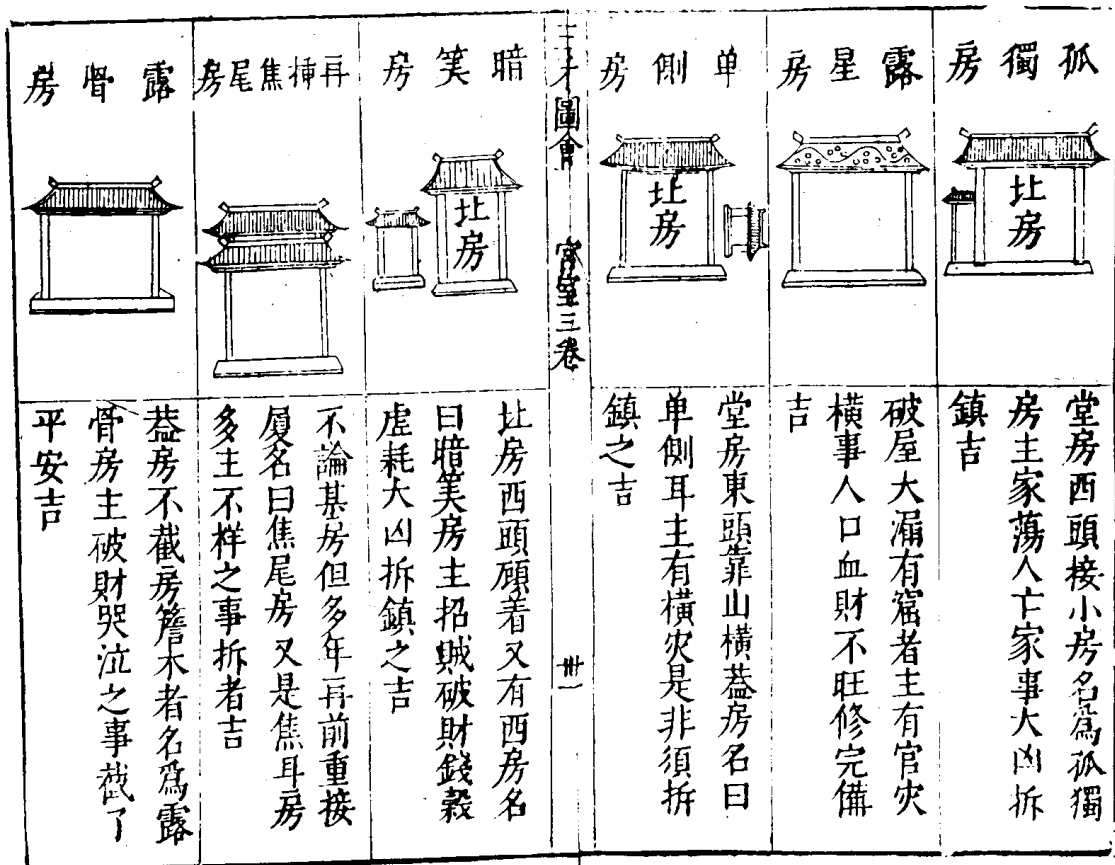 孤獨房
北房
堂房西頭接小房名爲孤獨
房主家蕩人亡家事大凶拆
鎮吉
露星房
破屋大漏有窟者主有官灾
橫事人口血財不旺修完備
吉
单側房
北房
堂房東頭靠山橫蓋房名曰
单側耳主有橫灾是非須拆
鎮之吉
三才圖會
宮室三卷
卅一
暗笑房
北房
北房西頭顧着又有西房名
曰暗笑房主招賊破財錢穀
虛耗大凶拆鎮之吉
再挿焦尾房
不論某房但多年再前重接
厦名曰焦尾房又是焦耳房
多主不样之事拆者吉
露骨房
蓋房不截房簷木者名爲露
骨房主破財哭泣之事截了
平安吉